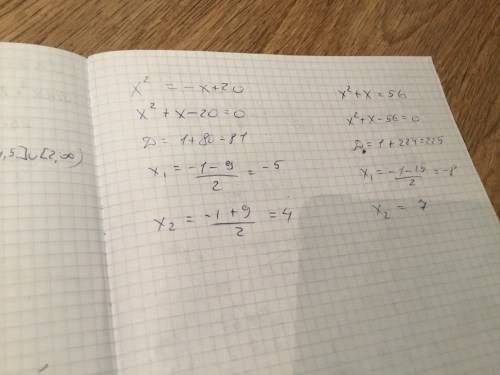 ,5]∪[2,∞)
x² = -x+20
x² + x - 20 = 0
D = 1 + 80 = 81
x₁ = (-1 - 9)/2 = -5
x₂ = (-1 + 9)/2 = 4
x² + x = 56
x² + x - 56 = 0
D = 1 + 224 = 225
x₁ = (-1 - 15)/2 = -8
x₂ = 7